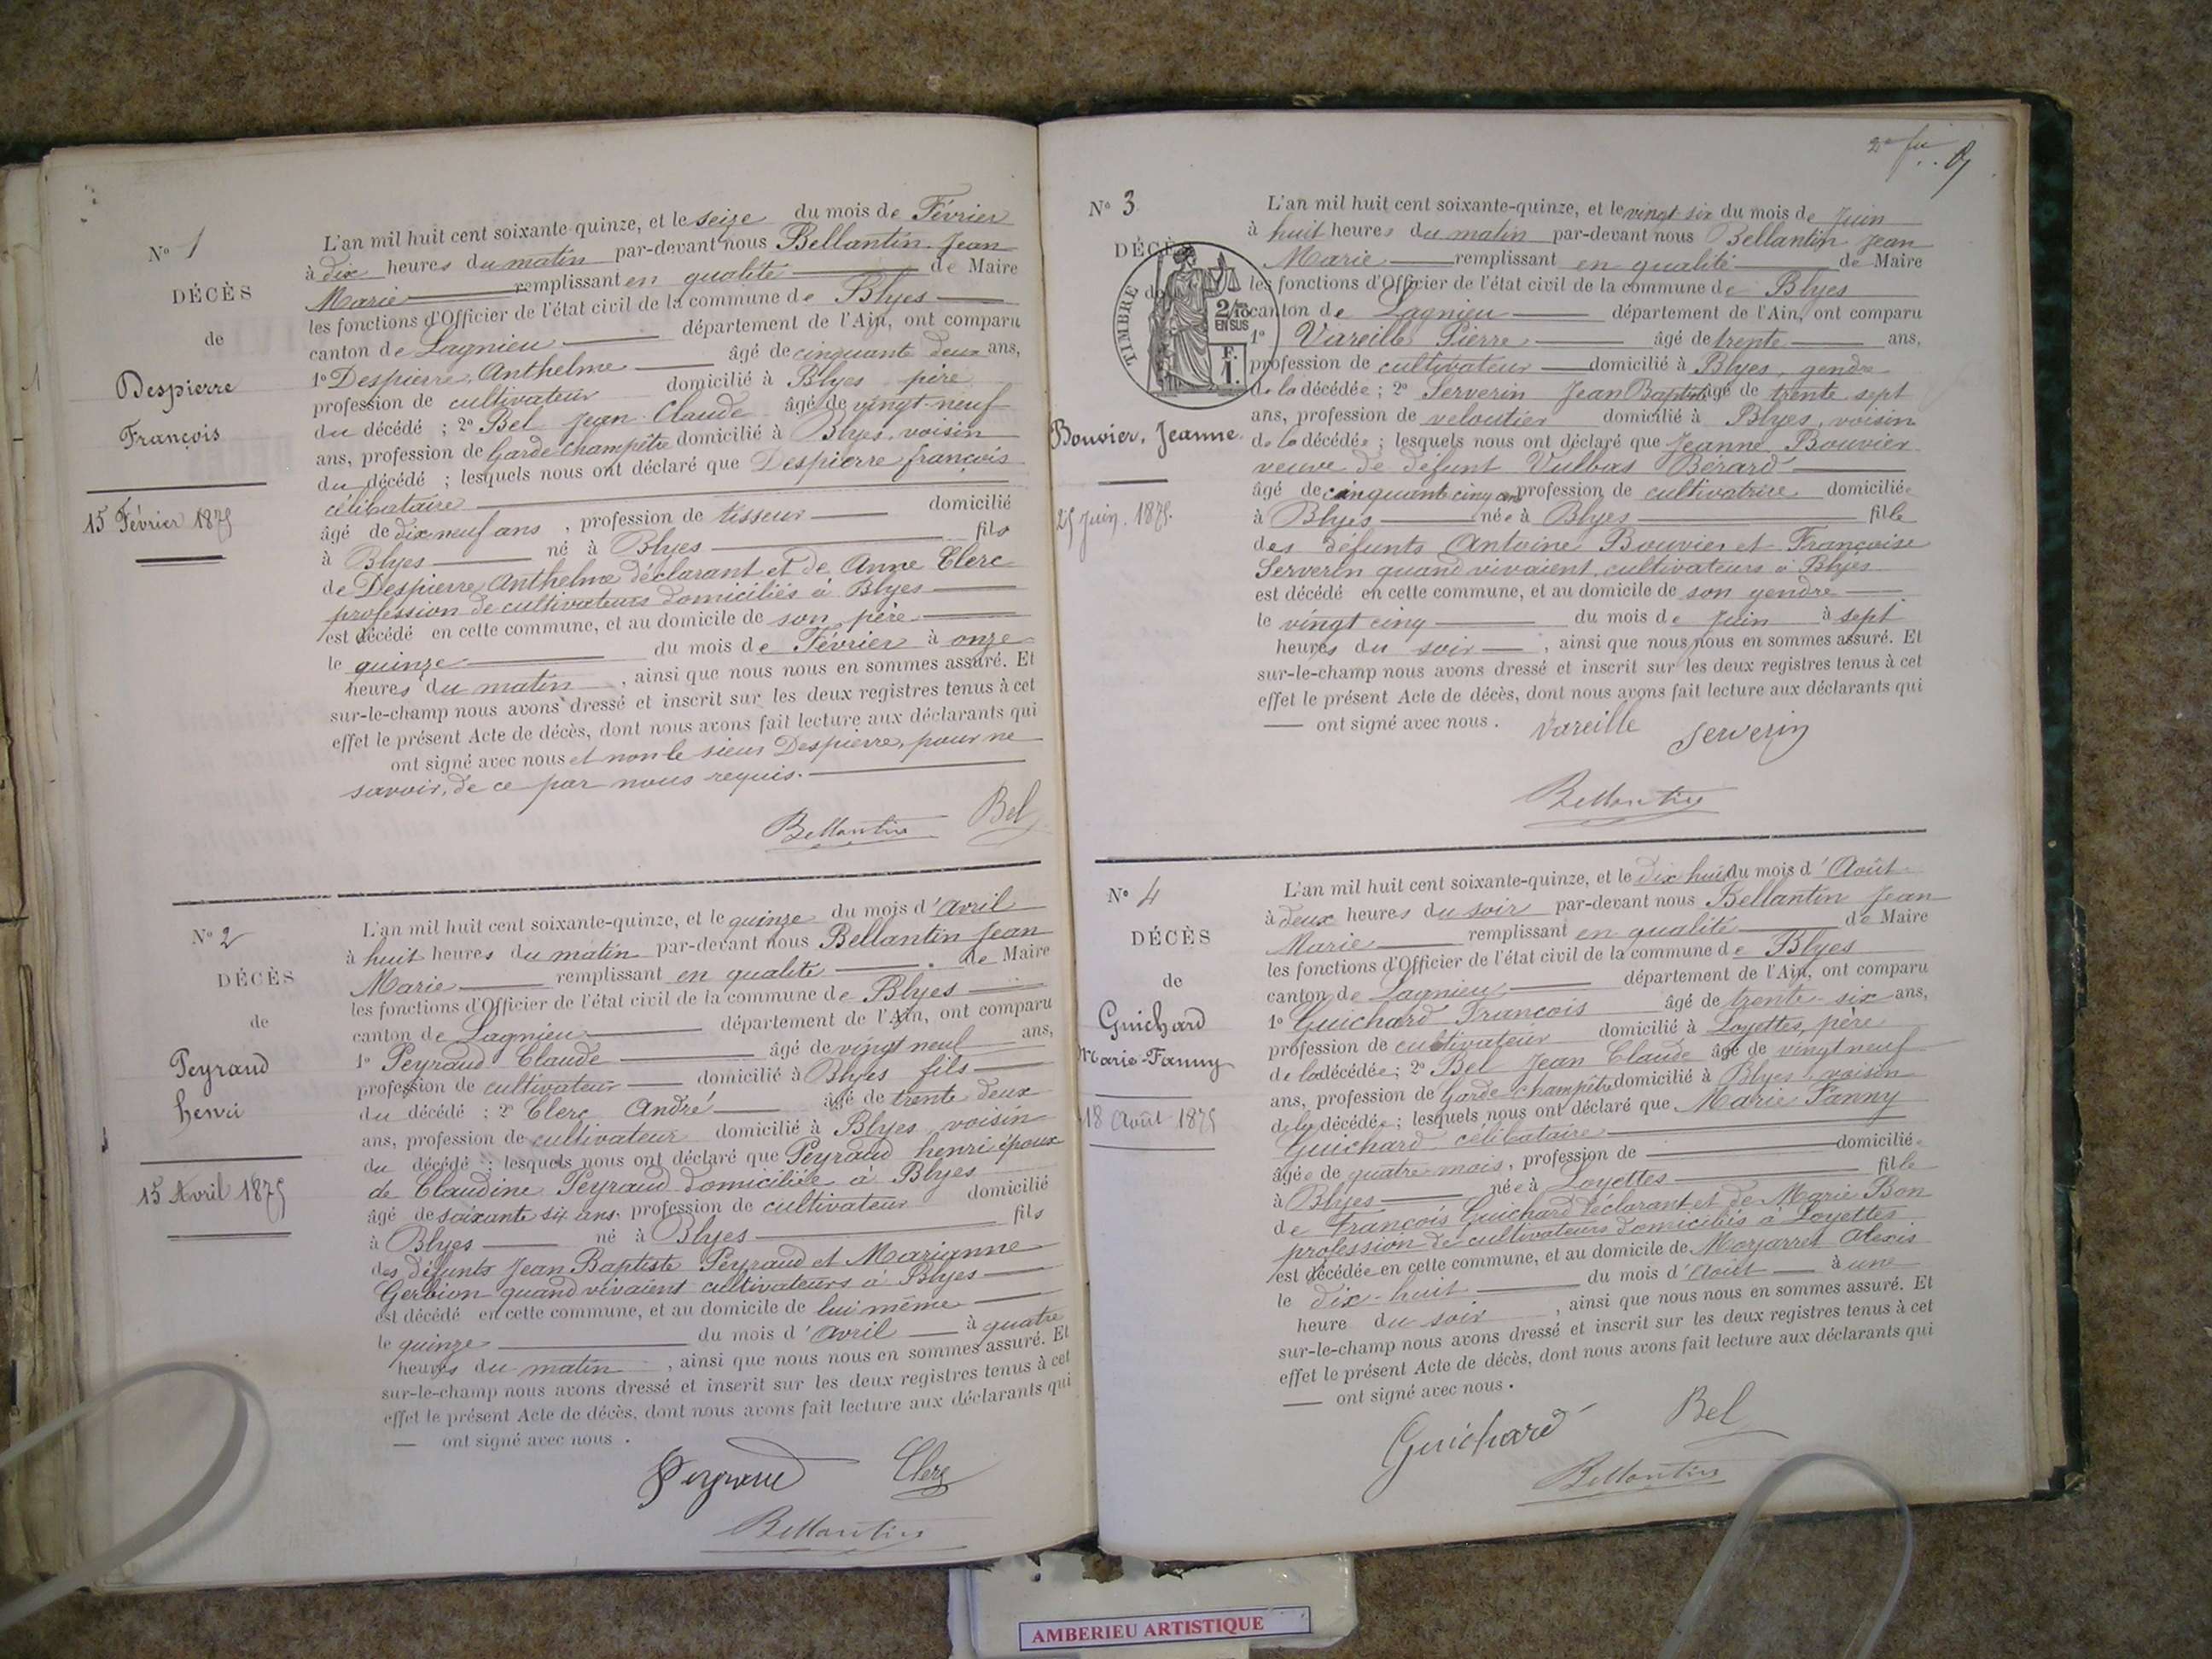 N° 1
DÉCÈS
de
Despierre
François
15 Février 1875
L'an mil huit cent soixante-quinze, et le seize du mois de Février
à dix heures du matin par-devant nous Bellantin Jean
Marie remplissant en qualité de Maire
les fonctions d'Officier de l'état civil de la commune de Blyes
canton de Lagnieu département de l'Ain, ont comparu
1° Despierre Anthelme âgé de cinquante deux ans,
profession de cultivateur domicilié à Blyes père
du décédé ; 2° Bel Jean Claude âgé de vingt-neuf
ans, profession de Garde Champêtre domicilié à Blyes, voisin
du décédé ; lesquels nous ont déclaré que Despierre françois
célibataire
âgé de dix neuf ans, profession de tisseur domicilié
à Blyes né à Blyes fils
de Despierre Anthelme déclarant et de Anne Clerc
profession de cultivateurs domiciliés à Blyes
est décédé en cette commune, et au domicile de son père
le quinze du mois de Février à onze
heures du matin, ainsi que nous nous en sommes assuré. Et
sur-le-champ nous avons dressé et inscrit sur les deux registres tenus à cet
effet le présent Acte de décès, dont nous avons fait lecture aux déclarants qui
ont signé avec nous et non le sieur Despierre, pour ne
savoir, de ce par nous requis.
Bellantin Bel
N° 2
DÉCÈS
de
Peyraud
henri
15 Avril 1875
L'an mil huit cent soixante-quinze, et le quinze du mois d'avril
à huit heures du matin par-devant nous Bellantin Jean
Marie remplissant en qualité de Maire
les fonctions d'Officier de l'état civil de la commune de Blyes
canton de Lagnieu département de l'Ain, ont comparu
1° Peyraud Claude âgé de vingt neuf ans,
profession de cultivateur domicilié à Blyes fils
du décédé ; 2° Clerc André âgé de trente deux
ans, profession de cultivateur domicilié à Blyes, voisin
du décédé ; lesquels nous ont déclaré que Peyraud henri époux
de Claudine Peyraud domiciliée à Blyes
âgé de soixante six ans, profession de cultivateur domicilié
à Blyes né à Blyes fils
des défunts Jean Baptiste Peyraud et Marianne
Gerbion quand vivaient cultivateurs à Blyes
est décédé en cette commune, et au domicile de lui même
le quinze du mois d'avril à quatre
heures du matin, ainsi que nous nous en sommes assuré. Et
sur-le-champ nous avons dressé et inscrit sur les deux registres tenus à cet
effet le présent Acte de décès, dont nous avons fait lecture aux déclarants qui
ont signé avec nous.
Peyraud Clerc
Bellantin
N° 3
DÉCÈS
de
TIMBRE
2/10
EN SUS
F.
1.
Bouvier, Jeanne
25 Juin. 1875.
L'an mil huit cent soixante-quinze, et le vingt six du mois de Juin
à huit heures du matin par-devant nous Bellantin Jean
Marie remplissant en qualité de Maire
les fonctions d'Officier de l'état civil de la commune de Blyes
canton de Lagnieu département de l'Ain, ont comparu
1° Viareille Pierre âgé de trente ans,
profession de cultivateur domicilié à Blyes, gendre
de la décédée ; 2° Serverin Jean Baptiste âgé de trente sept
ans, profession de veloutier domicilié à Blyes, voisin
de la décédée ; lesquels nous ont déclaré que Jeanne Bouvier
veuve de défunt Vulbas Bérard
âgé de cinquante cinq ans profession de cultivatrice domiciliée
à Blyes née à Blyes fille
des défunts Antoine Bouvier et Françoise
Serverin quand vivaient cultivateurs à Blyes
est décédé en cette commune, et au domicile de son gendre
le vingt cinq du mois de Juin à sept
heures du soir, ainsi que nous nous en sommes assuré. Et
sur-le-champ nous avons dressé et inscrit sur les deux registres tenus à cet
effet le présent Acte de décès, dont nous avons fait lecture aux déclarants qui
ont signé avec nous. Vareille Serverin
Bellantin
N° 4
DÉCÈS
de
Guichard
Marie-Fanny
18 Août 1875
L'an mil huit cent soixante-quinze, et le dix huit du mois d'Août
à deux heures du soir par-devant nous Bellantin Jean
Marie remplissant en qualité de Maire
les fonctions d'Officier de l'état civil de la commune de Blyes
canton de Lagnieu département de l'Ain, ont comparu
1° Guichard François âgé de trente-six ans,
profession de cultivateur domicilié à Loyettes, père
de la décédée ; 2° Bel Jean Claude âgé de vingt neuf
ans, profession de Garde champêtre domicilié à Blyes, voisin
de la décédée ; lesquels nous ont déclaré que Marie Fanny
Guichard célibataire
âgée de quatre mois, profession de domiciliée
à Blyes née à Loyettes fille
de François Guichard déclarant et de Marie Bon
profession de cultivateurs domiciliés à Loyettes
est décédée en cette commune, et au domicile de Morjarret Alexis
le dix-huit du mois d'Août à une
heure du soir, ainsi que nous nous en sommes assuré. Et
sur-le-champ nous avons dressé et inscrit sur les deux registres tenus à cet
effet le présent Acte de décès, dont nous avons fait lecture aux déclarants qui
ont signé avec nous.
Guichard Bel
Bellantin
AMBERIEU ARTISTIQUE